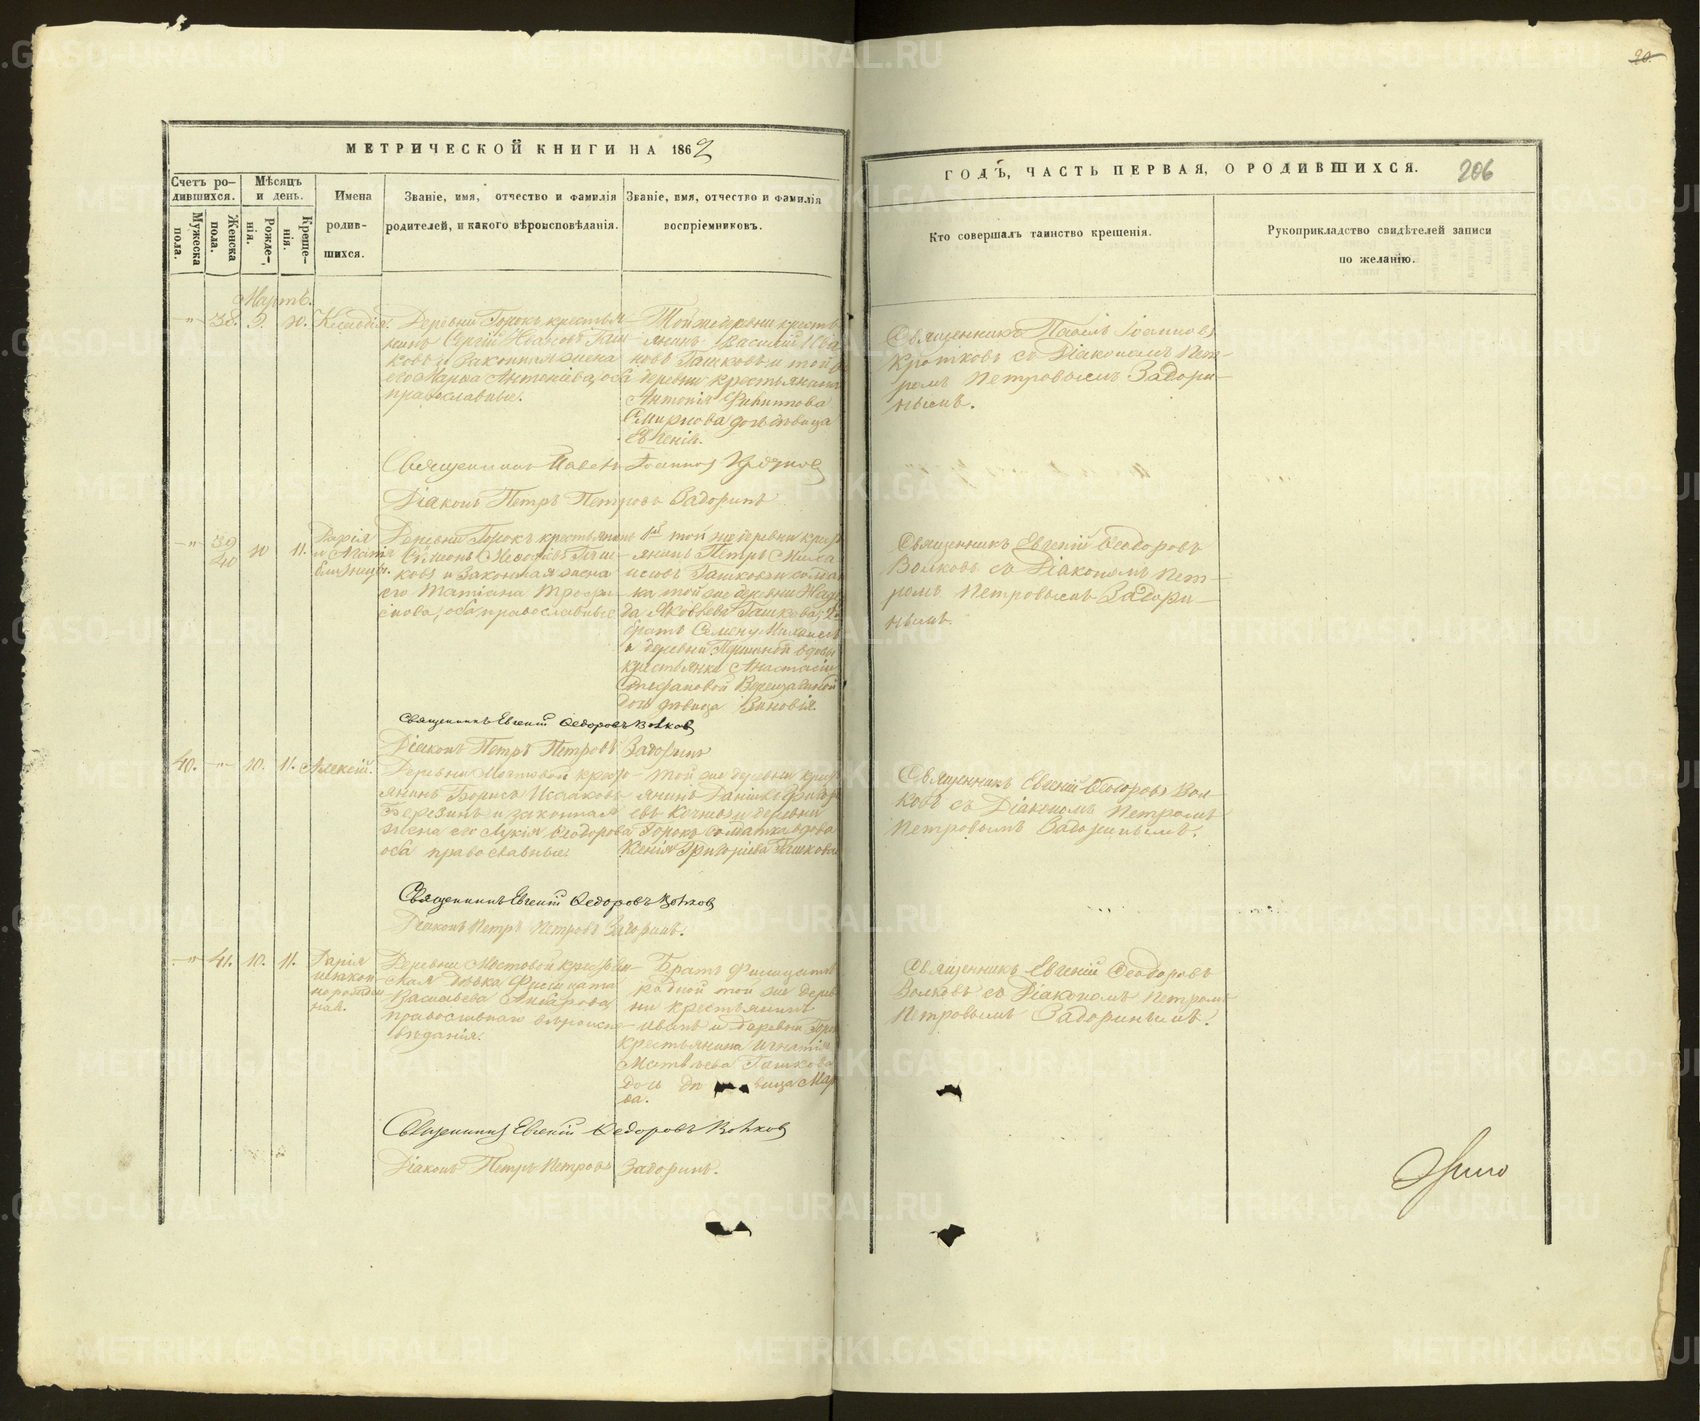 20.
МЕТРИЧЕСКОЙ КНИГИ НА 1862
ГОДЪ, ЧАСТЬ ПЕРВАЯ, О РОДИВШИХСЯ.
206
Счетъ ро-
дившихся.
Мѣсяцъ
и день.
Мужеска
пола.
Женска
пола.
Рожде-
нія.
Креще-
нія.
Имена
родив-
шихся.
Званіе, имя, отчество и фамилія
родителей, и какого вѣроисповѣданія.
Званіе, имя, отчество и фамилія
воспріемниковъ.
Кто совершалъ таинство крещенія.
Рукоприкладство свидѣтелей записи
по желанію.
Мартъ.
38. 9. 10.
Деревни Горокъ крестья
нинъ Сергій Ивановъ Гаш
ковъ и законная жена
его Марѳа Антоніева, оба
православные.
Той же деревни кресть
янинъ Василій
новъ Гашковъ и той
деревни крестьянина
Антонія Филиппова
Смирнова дочь дѣвица
Евгенія.
Священникъ Павелъ Іоанновъ
Кротковъ съ Діакономъ Пет-
ромъ Петровымъ Задори-
нымъ.
Священникъ Павелъ Іоаннов
Діаконъ Петръ Петровъ Задоринъ
39
40
10 11.
Дарія
и Агаѳія
близнецы.
Деревни Горокъ крестьянинъ
Симеонъ Гаш
ковъ и законная жена
его Татіана Трофи
мова, оба православные.
1й той же деревни крест
янинъ Петръ
Гашковъ и солдат
ка той же деревни Наде
да Яковлева Гашкова; 2й
братъ Семену
и деревни вдовы
крестьянки Анастасіи
Стефановой
дочь дѣвица Зиновія.
Священникъ Евгеній Ѳеодоровъ
Волковъ съ Діакономъ Пет-
ромъ Петровымъ Задори-
нымъ.
Священникъ Евгеній Ѳедоровъ Волков
Діаконъ Петръ Петровъ Задоринъ
40. 10. 11. Алексій.
Деревни Мостовой крест
янинъ Борисъ Исааковъ
Березинъ и законная
жена его Лукія Ѳеодорова
оба православные.
той же деревни крест
янинъ Даніилъ Григорь
евъ и деревни
Горокъ солдатка вдова
Ксенія Григоріева Гашкова
Священникъ Евгеній Ѳеодоровъ Вол-
ковъ съ Діакономъ Петромъ
Петровымъ Задоринымъ.
Священникъ Евгеній Ѳедоровъ Волков
Діаконъ Петръ Петровъ Задоринъ.
41. 10. 11.
Дарія
незакон
норожден
ная.
Деревни Мостовой крестьян
ская дѣвка Фелицата
Васильева
православнаго вѣроиспо
вѣданія.
Братъ Фелицаты
родной той же дерев
ни крестьянинъ
Иванъ и деревни Горокъ
крестьянина Игнатія
Матвѣева Гашкова
дочь дѣвица Мар
ѳа.
Священникъ Евгеній Ѳеодоровъ
Волковъ съ Діакономъ Петромъ
Петровымъ Задоринымъ.
Священникъ Евгеній Ѳедоровъ Волков
Діаконъ Петръ Петровъ Задоринъ.
METRIKI.GASO-URAL.RU